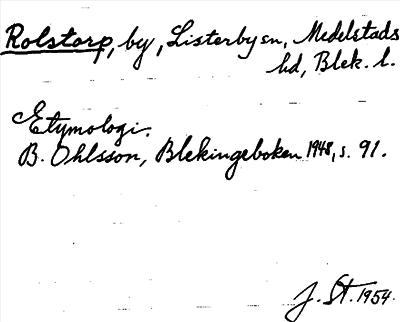 Rolstorp, by, Listerby sn, Medelstads
hd, Blek. l.
Etymologi.
B. Ohlsson, Blekingeboken 1948, s. 91.
J. St. 1954.